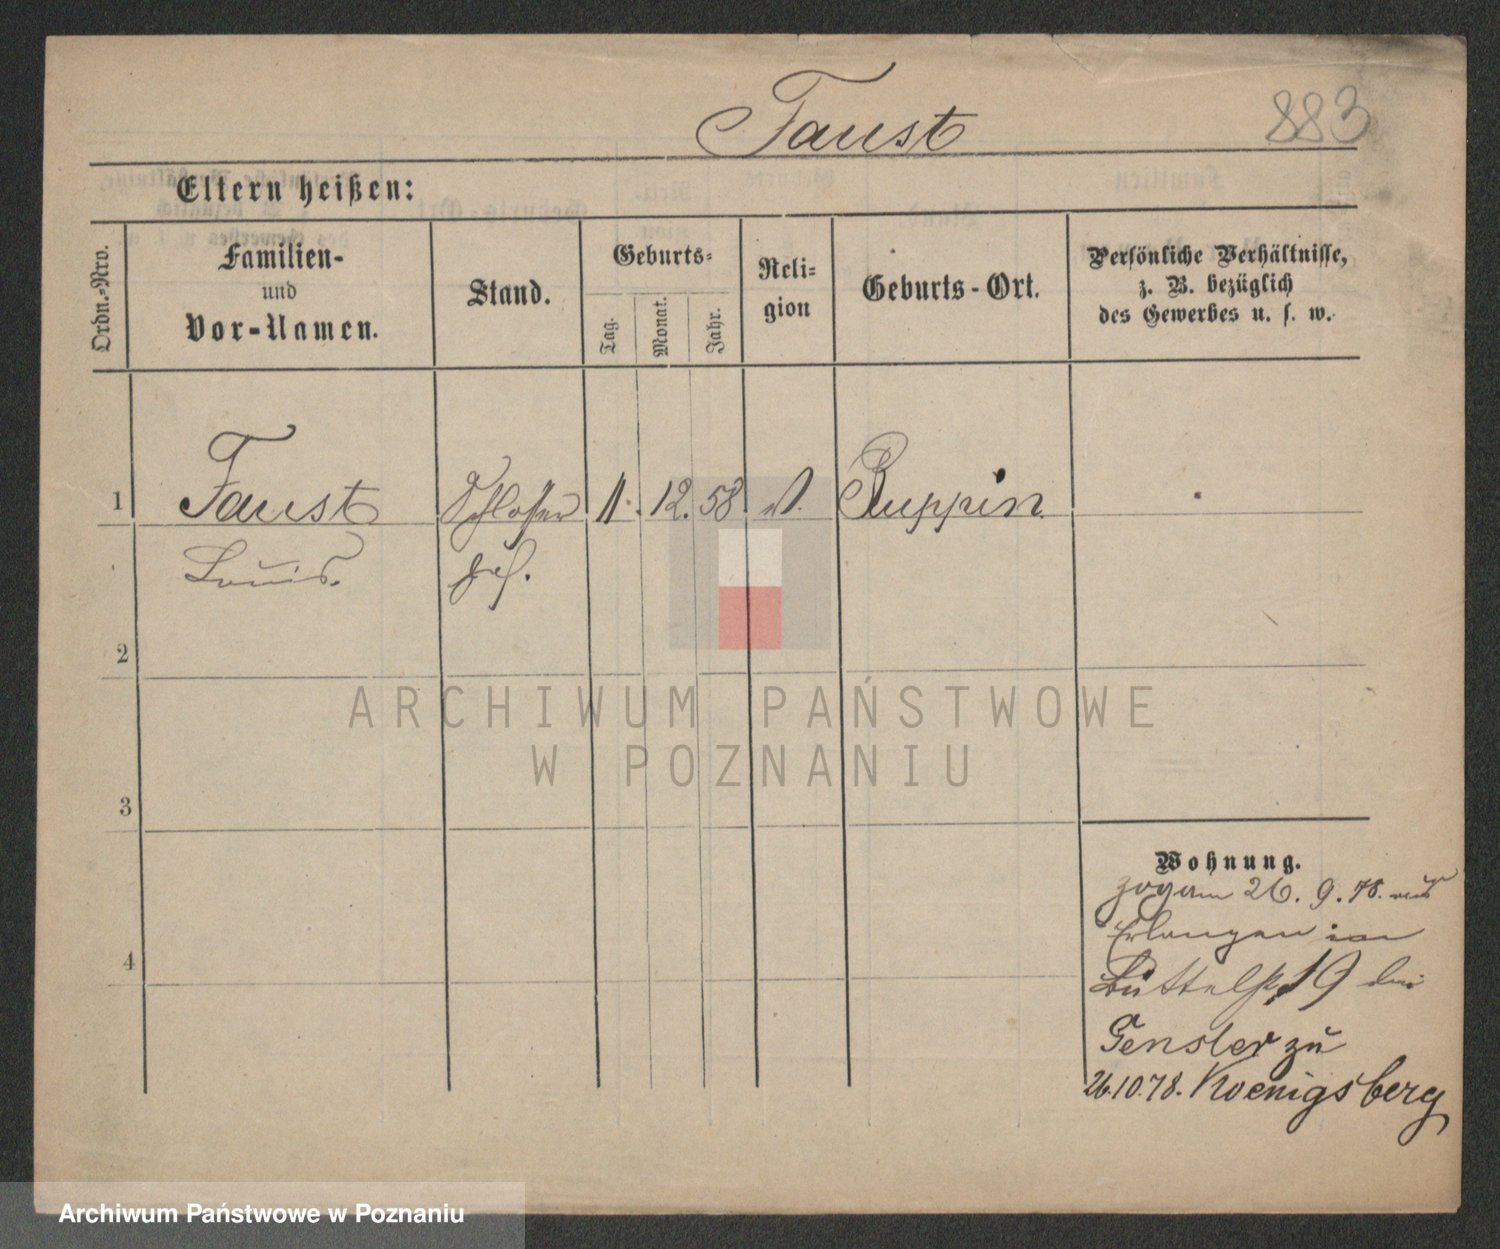 Faust
883
Eltern heißen:
Ordn.-Nro.
Familien-
und
Vor-Namen.
Stand.
Geburts-
Tag.
Monat.
Jahr.
Reli-
gion
Geburts-Ort.
Persönliche Verhältnisse,
z. B. bezüglich
des Gewerbes u. s. w.
1
Faust
Schlosser
12. 58
Ruppin
Louis.
Ges.
2
ARCHIWUM PAŃSTWOWE
W POZNANIU
3
Wohnung.
zog am 26. 9. 78. aus
Erlangen
4
Büttelstr. 19 bei
Gensler zu
26.10.78. Koenigsberg
Archiwum Państwowe w Poznaniu